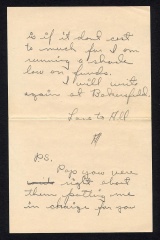 & if it dont cost
to much for I am
running a shade
low on funds.
I will write
again at Bakersfield.
Love to All
PS.
Pop you were
right about
them putting me
in charge for you